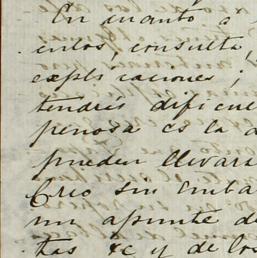 En cuanto á
entos, consulta,
expli caciones;
tendreis dificul
penosa es la a
pueden llevars
Creo sin emba
un apunte de
tas &c y de los